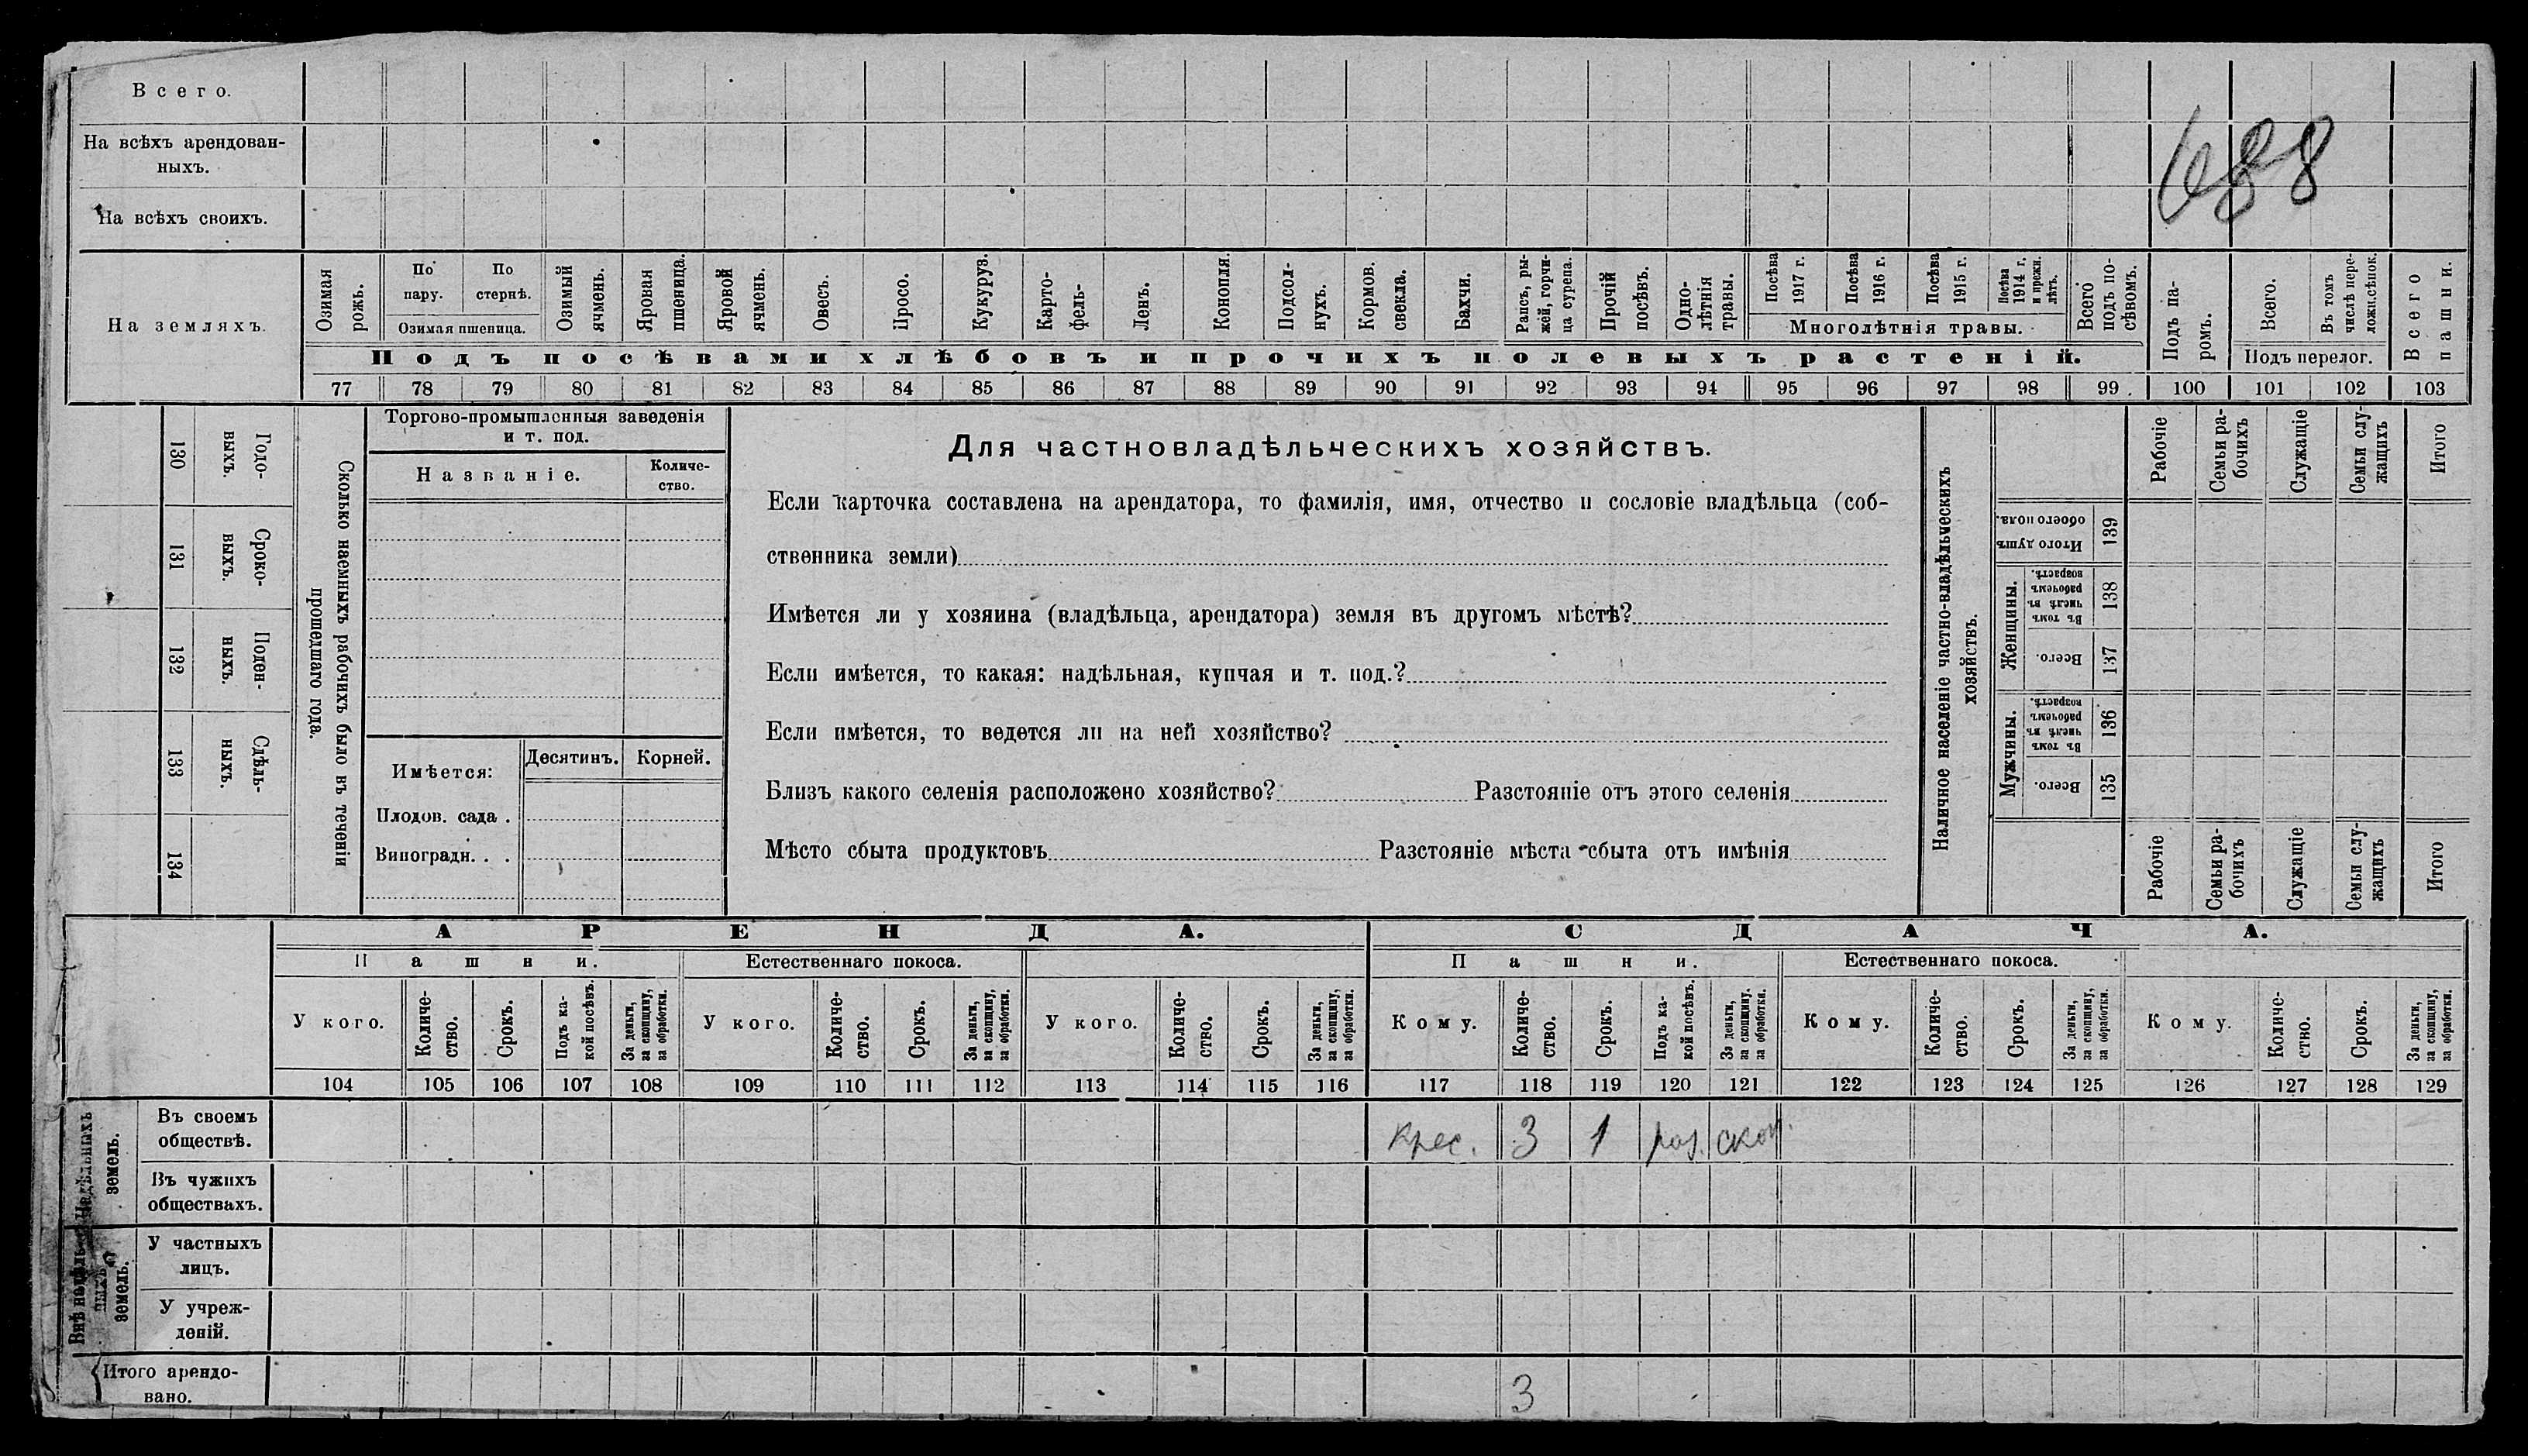 Всего.
На всѣхъ арендован-
ныхъ.
На всѣхъ своихъ.
688
На земляхъ.
Озимая рожь.
По пару.
По стернѣ.
Озимая пшеница.
Озимый ячмень.
Яровая пшеница.
Яровой ячмень.
Овесъ.
Просо.
Кукуруз.
Карто-
фель-
Ленъ.
Конопля.
Подсол-
нухъ.
Кормов. свекла.
Бахчи.
Рапсъ, ры-
жей, горчи-
ца сурепа.
Прочій посѣвъ.
Одно-
лѣтнія травы.
Посѣва 1917 г.
Посѣва 1916 г.
Посѣва 1915 г.
Посѣва 1914 г. и прежн. лѣтъ.
Многолѣтнія травы.
Всего подъ по-
сѣвомъ.
Подъ посѣвами хлѣбовъ и прочихъ полевыхъ растеній.
Подъ па-
ромъ.
Всего.
Въ томъ числѣ пере-
ложн.сѣнок.
Подъ перелог.
Всего пашни.
77 78 79 80 81 82 83 84 85 86 87 88 89 90 91 92 93 94 95 96 97 98 99 . 100 101 102 103
130 Годо-
выхъ.
131 Сроко-
выхъ.
132 Поден-
ныхъ.
133 Сдѣль-
ныхъ.
134
Сколько наемныхъ рабочихъ было въ теченіи
прошедшаго года.
Торгово-промышленныя заведенія
и т. под.
Названіе.
Количе-
ство.
Имѣется:
Десятинъ.
Корней.
Плодов. сада .
Виноградн. . .
Для частновладѣльческихъ хозяйствъ.
Если карточка составлена на арендатора, то фамилія, имя, отчество и сословіе владѣльца (соб-
ственника земли)
Имѣется ли у хозяина (владѣльца, арендатора) земля въ другомъ мѣстѣ?
Если имѣется, то какая: надѣльная, купчая и т. под.?
Если имѣется, то ведется ли на ней хозяйство?
Близъ какого селенія расположено хозяйство? Разстояніе отъ этого селенія
Мѣсто сбыта продуктовъ Разстояніе мѣста сбыта отъ имѣнія
Наличное населеніе частно-владѣльческихъ
хозяйствъ.
Рабочіе
Семьи ра-
бочихъ
Служащіе
Семьи слу-
жащихъ
Итого
Итого душъ обоего пола. 139
Женщины.
Въ томъ числѣ въ рабочемъ возрастѣ. 138
Всего. 137
Мужчины.
Въ томъ числѣ въ рабочемъ возрастѣ. 136
Всего. 135
Рабочіе
Семьи ра-
бочихъ
Служащіе
Семьи слу-
жащихъ
Итого
АРЕНДА.
СДАЧА.
Пашни.
Естественнаго покоса.
Пашни.
Естественнаго покоса.
У кого.
Количе-
ство.
Срокъ.
Подъ ка-
кой посѣвъ.
За деньги, за скопщину, за обработки.
У кого.
Количе-
ство.
Срокъ.
За деньги, за скопщину, за обработки.
У кого.
Количе-
ство.
Срокъ.
За деньги, за скопщину, за обработки.
Кому.
Количе-
ство.
Срокъ.
Подъ ка-
кой посѣвъ.
За деньги, за скопщину. за обработки.
Кому.
Количе-
ство.
Срокъ.
За деньги, за скопщину, за обработки.
Кому.
Количе-
ство.
Срокъ.
За деньги, за скопщину, за обработки.
104 105 106 107 108 109 110 111 112 113 114 115 116 117 118 119 120 121 122 123 124 125 126 127 128 129
Надѣльныхъ земель.
Въ своемъ
обществѣ.
Крес. 3 1 раз. скоп.
Въ чужихъ
обществахъ.
Внѣ надѣль-
ныхъ земель.
У частныхъ
лицъ.
У учреж-
деній.
Итого арендо-
вано.
3